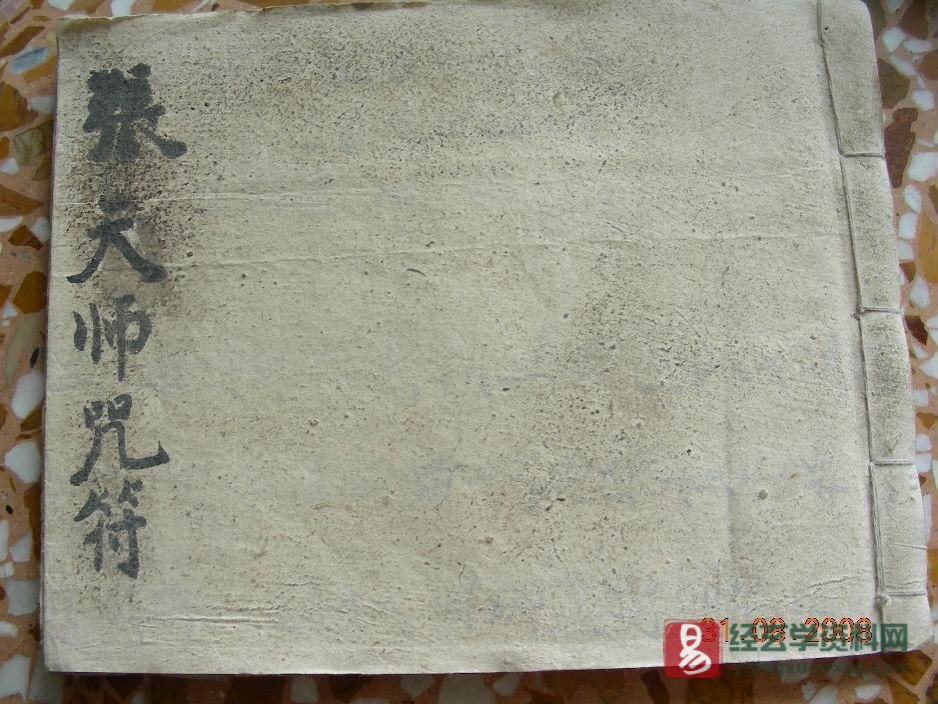 張天师咒符
31 08 2008
易
经艺学资料网